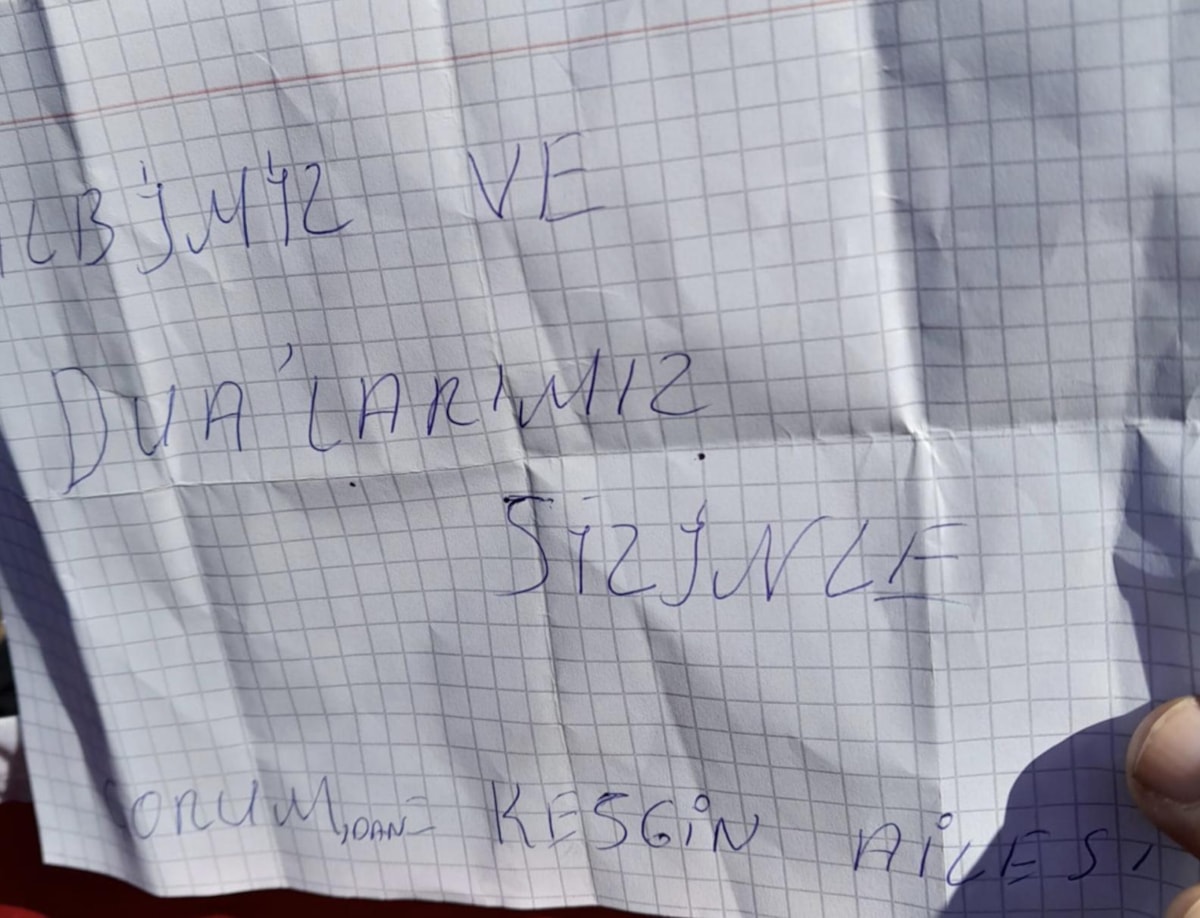 LBİMİZ VE
DUA'LARIMIZ
SİZİNLE
ÇORUM,DAN= KESGİN AİLESİ